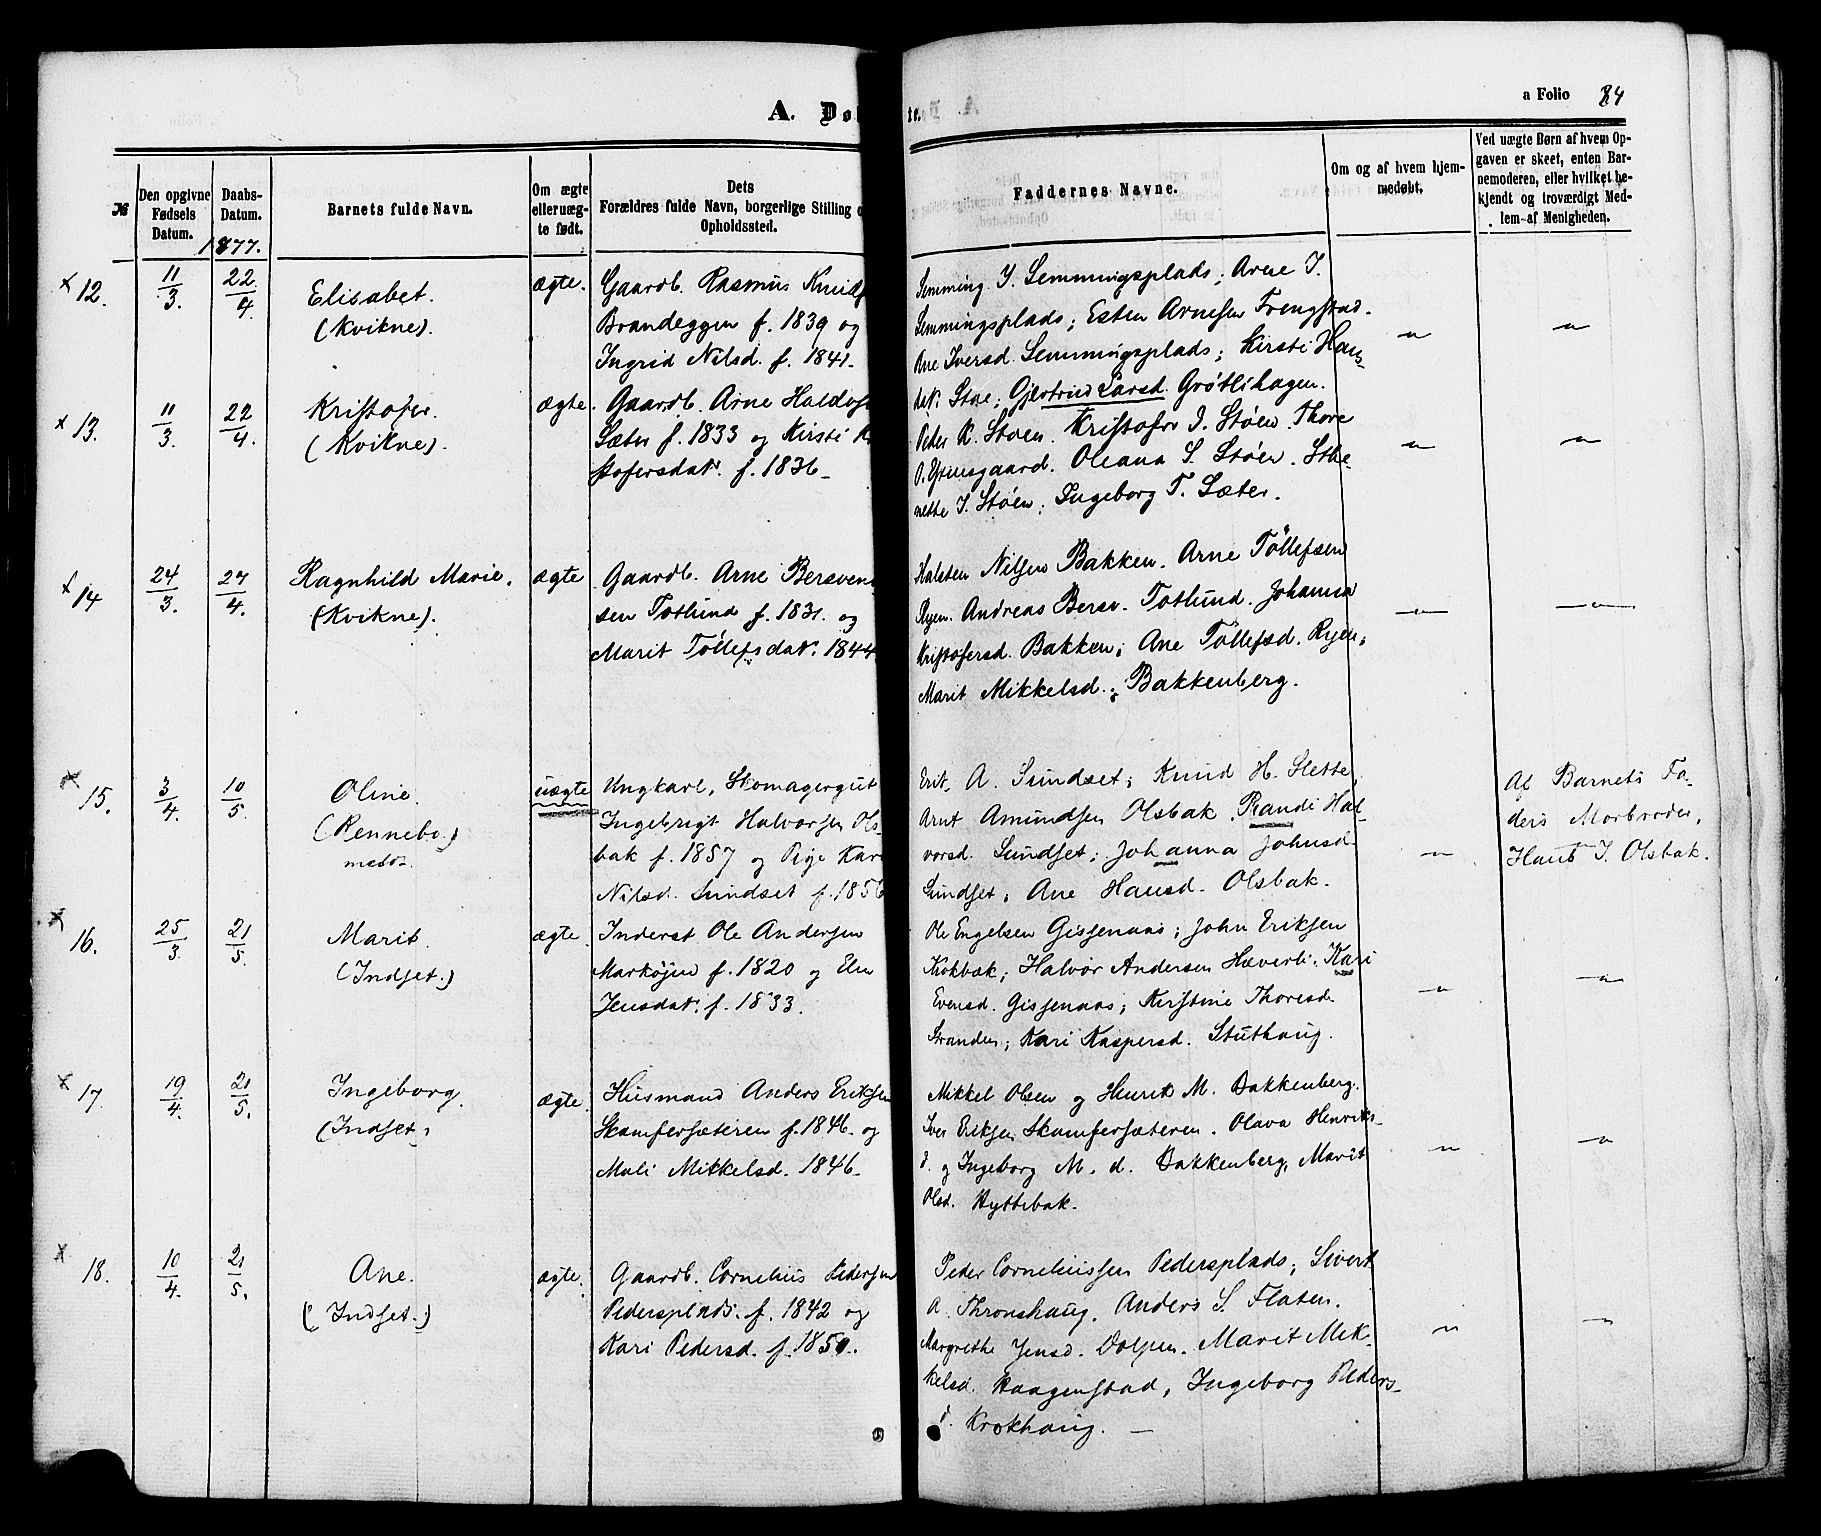 A. Dø
te.
a Folio 84
№
Den opgivne Fødsels Datum.
Daabs-Datum.
1877.
Barnets fulde Navn.
Om ægte eller uægte født.
Dets
Forældres fulde Navn, borgerlige Stilling o
Opholdssted.
Faddernes Navne.
Om og af hvem hjemmedøbt.
Ved uægte Børn af hvem Opgaven er skeet, enten Barnemoderen, eller hvilket bekjendt og troværdigt Medlem af Menigheden.
x 12.
11/3.
22/4.
Elisabet.
(Kvikne).
ægte.
Gaardb. Rasmus Knuds
Brandeggen f. 1839 og
Ingrid Nilsd. f. 1841.
Semming Y. Semmingsplads; Arne I.
Semmingsplads; Esten Arnesen Frengstad.
Ane Iversd. Semmingsplads; Kirsti Han
dat. Stoe; Gjertrud Larsd. Grötlihagen.
x 13.
11/3.
22/4.
Kristofer.
(Kvikne).
ægte.
Gaardb. Arne Haldos
Sæter f. 1833 og Kirsti K
stofersdat. f. 1836
Peder R. Stöen. Kristofer I. Stöen. Thore
O. Grinsgaard. Oleana S. Stöen. Sthe-
nette I. Stöen; Ingeborg T. Sæter.
x 14
24/3.
27/4.
Ragnhild Marie.
(Kvikne).
ægte
Gaardb. Arne Bersven
sen Totlund f. 1831. og
Marit Töllefsdat. 1844
Halsten Nilsen Bakken. Arne Töllefsen
Ryen. Andreas Bersv. Totlund. Johanna
Kristofersd. Bakken; Ane Töllefsd. Ryen;
Marit Mikkelsd. Bakkenberg.
x 15.
3/4.
10/5.
Oline.
(Rennebo.)
uægte
Ungkarl, Skomagergut
Ingebrigt Halvorsen Ols
bak f. 1857 og Pige Kari
Nilsd. Sundset f. 1856
Erik A. Sundset; Knud H. Slette
Arnt Amundsen Olsbak. Randi Hal-
vorsd. Sundset; Johanna Johnsd
Sundset; Ane Hansd. Olsbak.
Af Barnets Fa-
ders Morbroder,
Hans I. Olsbak.
x 16.
25/3.
21/5.
Marit.
(Indset.)
ægte.
Inderst Ole Andersen
Marköjen f. 1820 og Elen
Jensdat. f. 1833.
Ole Engelsen Gissenaas; John Eriksen
Krokbæk; Halvor Andersen Hæverli. Kari
Evensd. Gissenaas; Kirstine Thoresd
Stranden; Kari Kaspersd. Stuthaug.
x 17.
19/4.
21/5.
Ingeborg.
(Indset)
ægte.
Husmand Anders Eriksen
Skamfersæteren f. 1846. og
Mali Mikkelsd. 1846.
Mikkel Olsen og Henrik M. Bakkenberg.
Iver Eriksen Skamfersæteren. Olava Henriks-
d. og Ingeborg M. d. Bakkenberg. Marit
Olsd. Hyttebak.
x 18.
10/4.
21/5.
Ane.
(Indset.)
ægte.
Gaardb. Cornelius Pedersen
Pedersplads. f. 1842 og
Kari Pedersd. f. 1850.
Peder Corneliussen Pedersplads; Sivert
A. Thronshaug. Anders S. Flaten.
Margrethe Jensd. Dolpen. Marit Mik-
kelsd. Haagenstad, Ingeborg Peders-
d. Krokhaug.